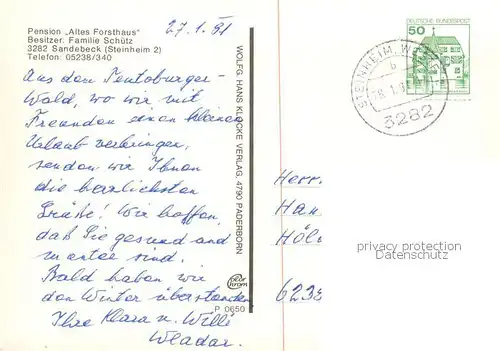 Pension „Altes Forsthaus"
Besitzer: Familie Schütz
3282 Sandebeck (Steinheim 2)
Telefon: 05238/340
27.1.81
Aus dem Teutoburger-
Wald, wo wir mit
Freunden einen kleinen
Urlaub verbringen,
senden wir Ihnen
die herzlichsten
Grüße! Wir hoffen,
daß Sie gesund und
munter sind.
Bald haben wir
den Winter überstanden
Ihre Klara u. Willi
WOLFG. HANS KLOCKE VERLAG, 4790 PADERBORN
P 0650
DEUTSCHE BUNDESPOST
50
STEINHEIM, W
b
3282
Herr
Han
Höl
6238
privacy protection
Datenschutz